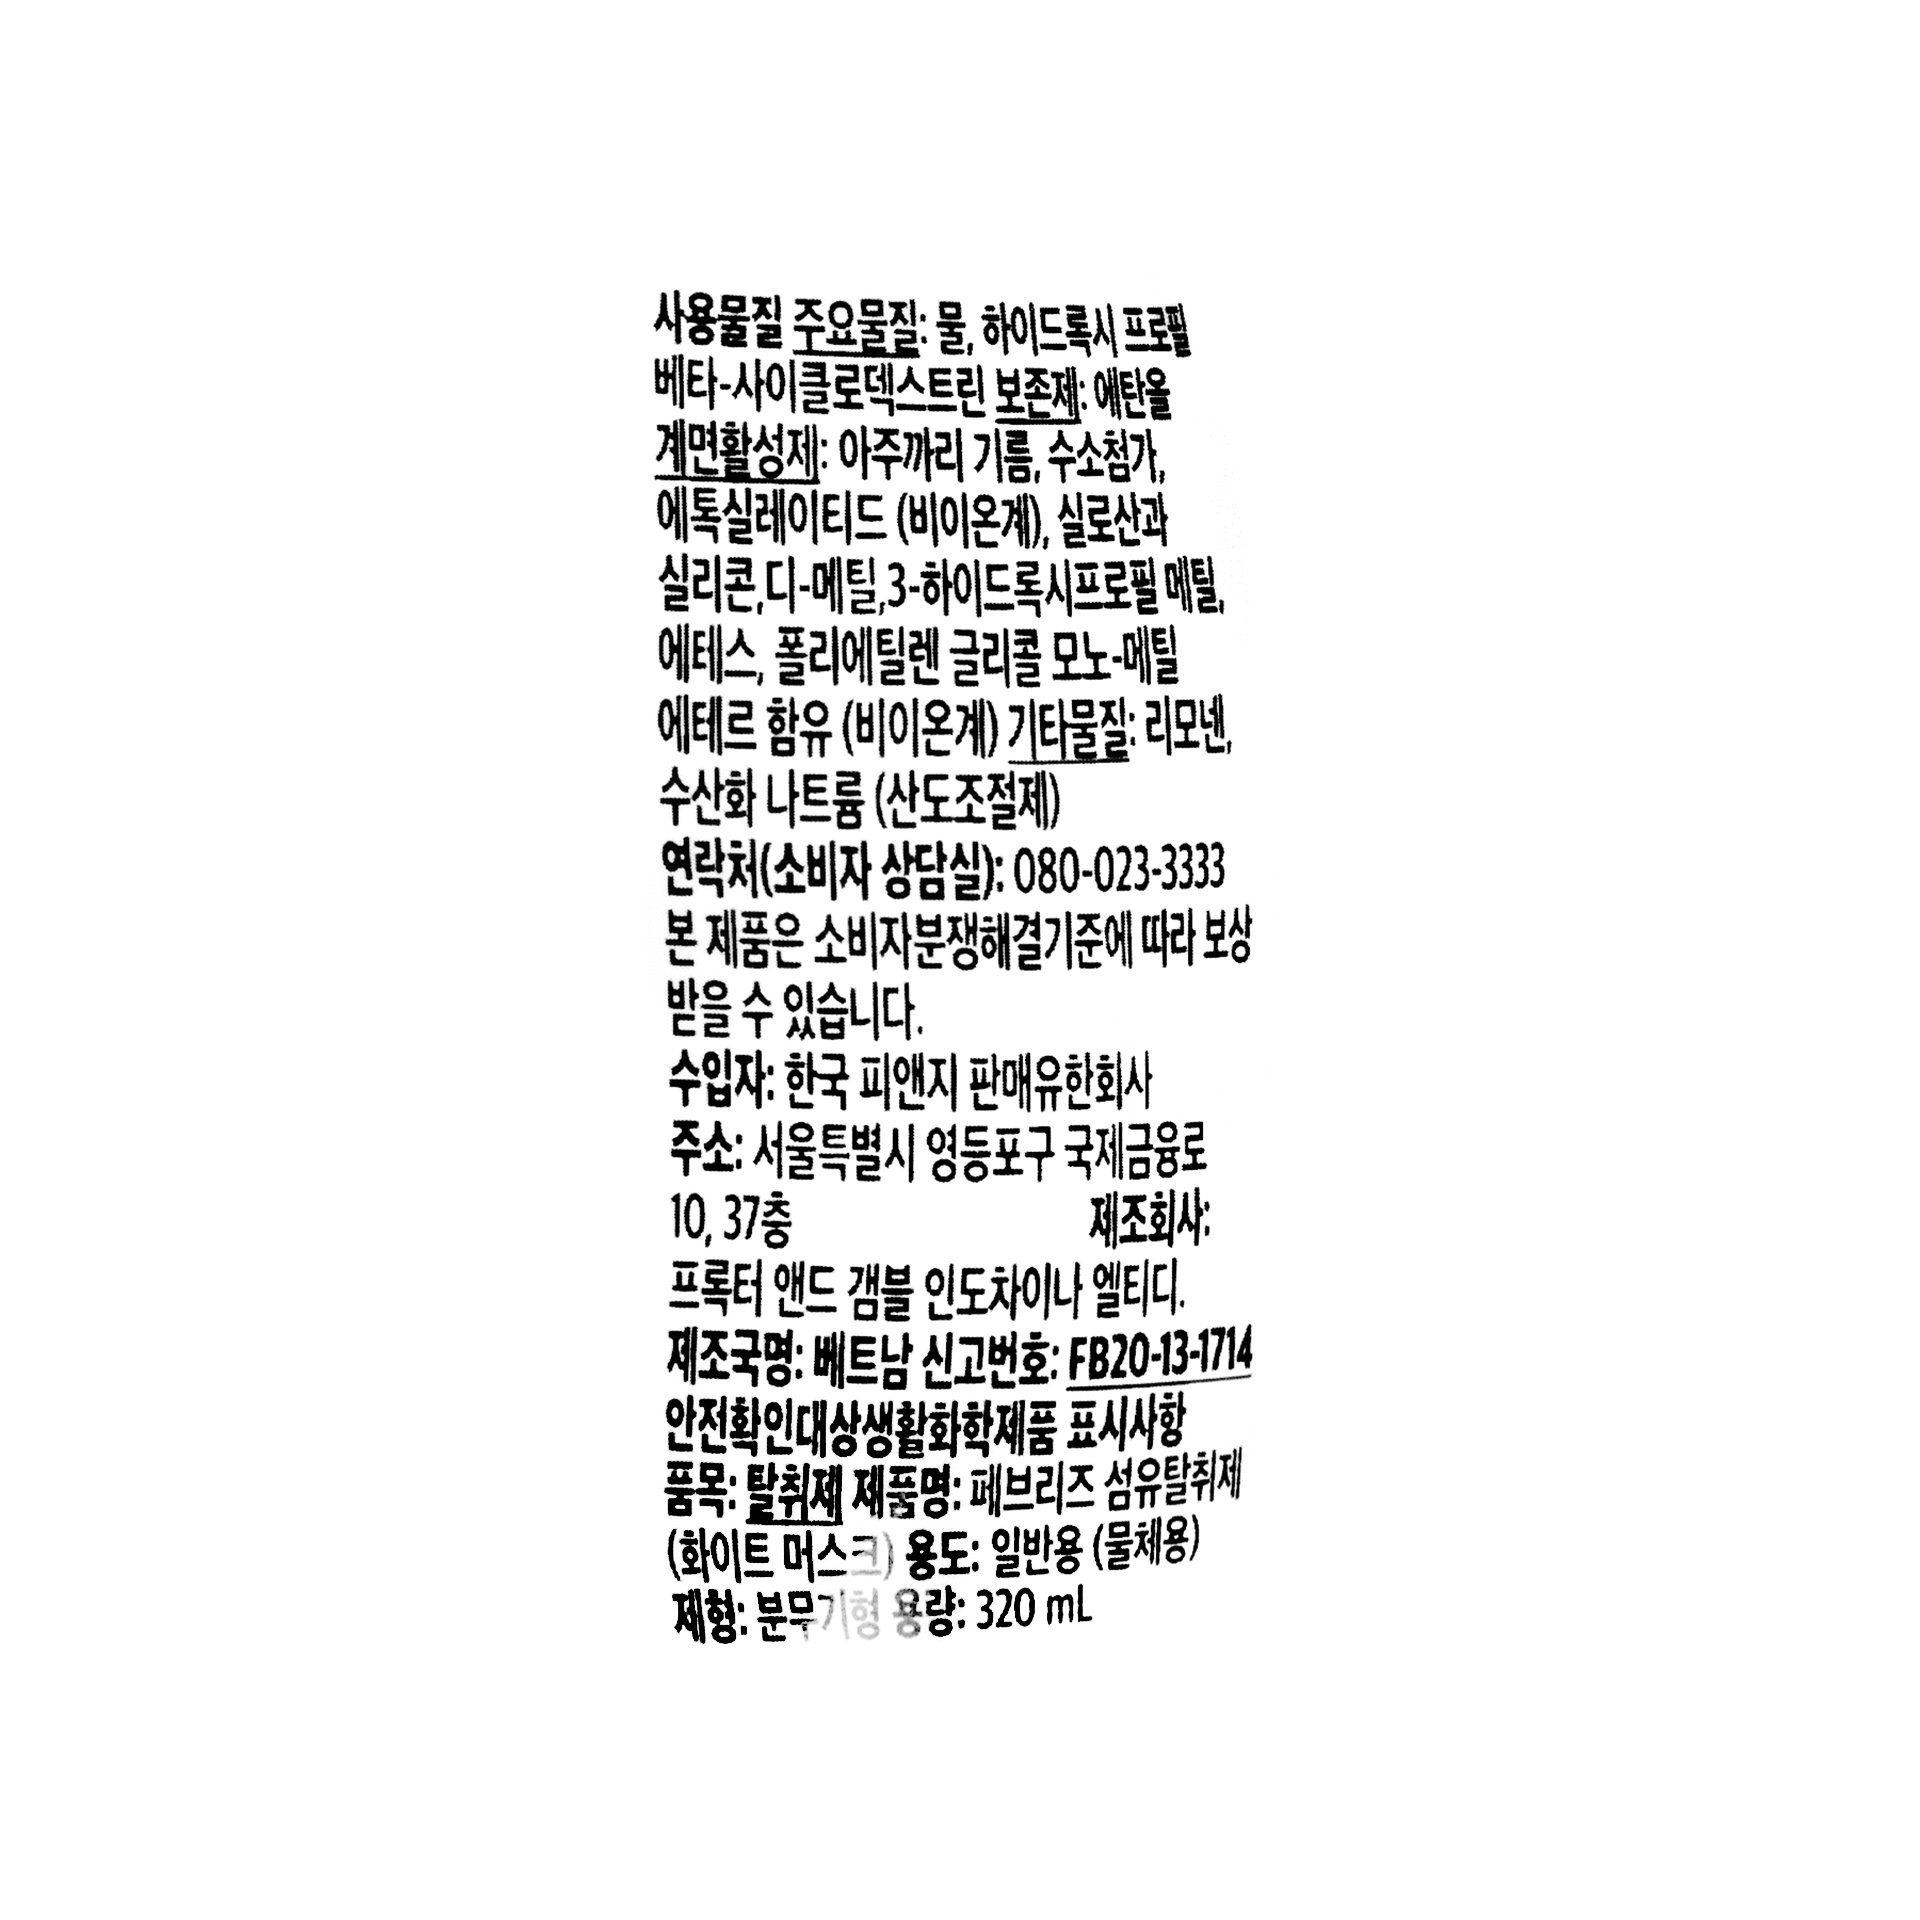 사용물질 주요물질: 물, 하이드록시 프로필
베타-사이클로덱스트린 보존제: 에탄올
계면활성제: 아주까리 기름, 수소첨가,
에톡실레이티드 (비이온계), 실로산과
실리콘,디-메틸,3-하이드록시프로필 메틸,
에테스, 폴리에틸렌 글리콜 모노-메틸
에테르 함유 (비이온계) 기타물질: 리모넨,
수산화 나트륨 (산도조절제)
연락처(소비자 상담실): 080-023-3333
본 제품은 소비자분쟁해결기준에 따라 보상
받을 수 있습니다.
수입자: 한국 피앤지 판매유한회사
주소: 서울특별시 영등포구 국제금융로
10, 37층 제조회사:
프록터 앤드 갬블 인도차이나 엘티디.
제조국명: 베트남 신고번호: FB20-13-1714
안전확인대상생활화학제품 표시사항
품목: 탈취제 제품명: 페브리즈 섬유탈취제
(화이트 머스크) 용도: 일반용 (물체용)
제형: 분무기형 용량: 320 mL